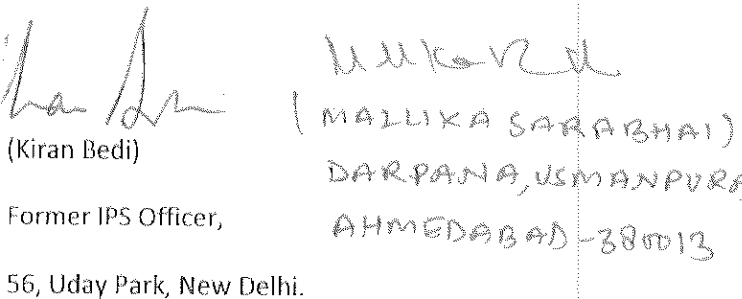 (Kiran Bedi)
Former IPS Officer,
56, Uday Park, New Delhi.
(MALLIKA SARABHAI)
DARPANA, USMANPURA
AHMEDABAD-380013